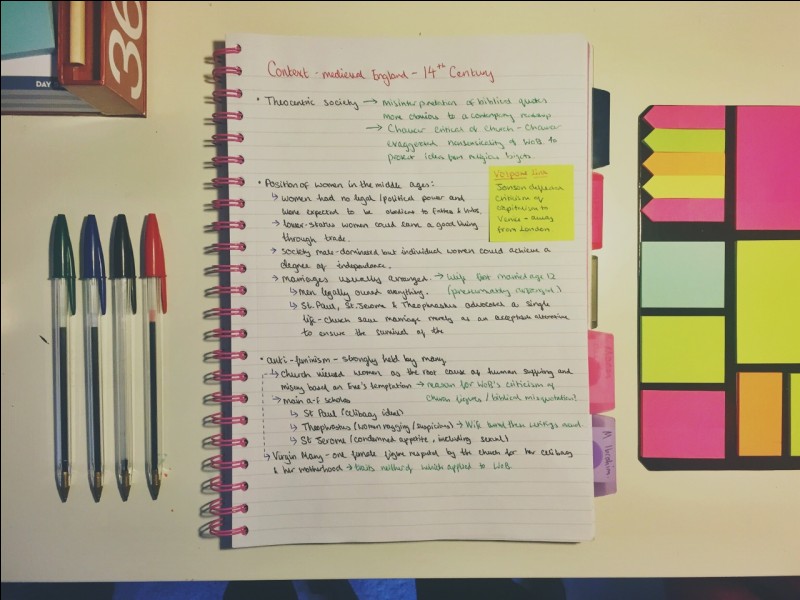 36
DAY
Context - medieval England - 14th Century
• Theocentric society → misinterpretation of biblical quotes
more obvious to a contemporary
→ Chaucer critical of Church - Chaucer
exaggerated nonsensicality of WoB to
protect ideas from religious bigots.
Volpone link
Jonson displaces
criticism of
capitalism to
Venice - away
from London
• Position of women in the middle ages:
↳ women had no legal / political power and
were expected to be obedient to fathers & hubs.
↳ lower-status women could earn a good living
through trade.
↳ society male-dominated but individual women could achieve a
degree of independance.
↳ marriages usually arranged. → Wife first married age 12
↳ men legally owned everything. (presumably arranged)
↳ St. Paul, St. Jerome & Theophrastus advocated a single
life - church saw marriage merely as an acceptable alternative
to ensure the survival of the
• anti-feminism - strongly held by many
↳ Church viewed women as the root cause of human suffering and
misery based on Eve's temptation → reason for WoB's criticism of
↳ Main a-f scholars Church figures / biblical misquotation!
↳ St Paul (celibacy ideal)
↳ Theophrastus (women nagging/suspicious) → Wife burned their writings
↳ St Jerome (condemned appetite, including sexual)
↳ Virgin Mary - one female figure respected by the church for her celibacy
& her motherhood → traits neither of which applied to WoB.
M Ibrahim